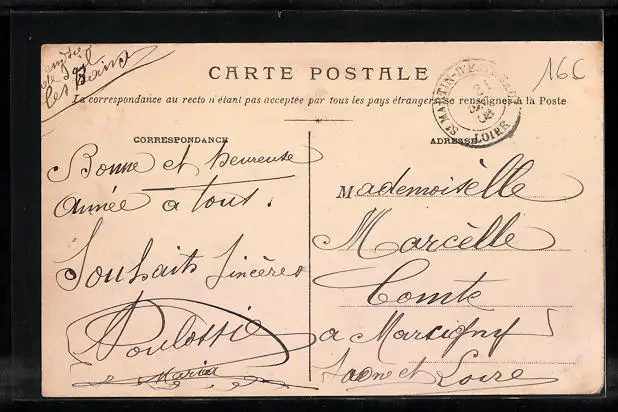 de Sail
les Bains
16C
CARTE POSTALE
La correspondance au recto n'étant pas acceptée par tous les pays étrangers, se renseigner à la Poste
CORRESPONDANCE
Bonne et heureuse
année a tous.
Souhaits sincères
Poulossie
Maria
ADRESSE
Mademoiselle
Marcelle
Comte
a Marsigny
Saone et Loire
ST MARTIN-D'ESTREAUX
LOIRE